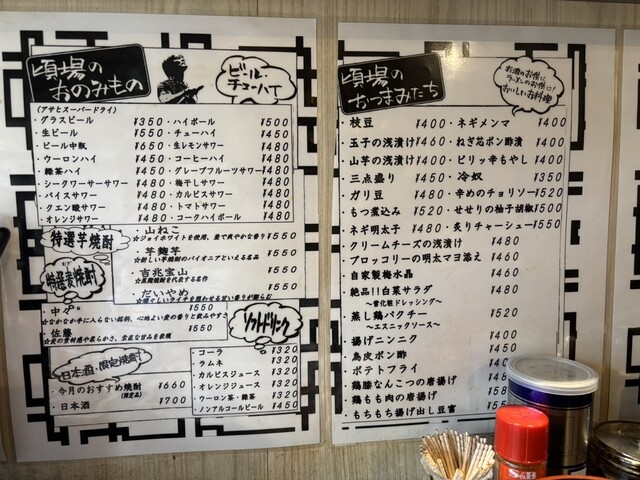 頃場の
おのみもの
ビール・
チューハイ
(アサヒスーパードライ)
・グラスビール ¥350
・生ビール ¥550
・ビール中瓶 ¥650
・ウーロンハイ ¥450
・緑茶ハイ ¥450
・シークワーサーサワー ¥480
・バイスサワー ¥480
・クエン酸サワー ¥480
・オレンジサワー ¥480
・ハイボール ¥500
・チューハイ ¥450
・生レモンサワー ¥480
・コーヒーハイ ¥480
・グレープフルーツサワー ¥480
・梅干しサワー ¥480
・カルピスサワー ¥480
・トマトサワー ¥480
・コークハイボール ¥480
特選芋焼酎
・山ねこ ¥550
☆ジョイホワイトを使用、豊で爽やかな香り
・芋麹芋 ¥550
☆新しい芋焼酎のパイオニアといえる名品
・吉兆宝山 ¥550
☆黒麹焼酎を代表する名作
・だいやめ ¥550
特選麦焼酎
・中々 ¥550
☆なかなか手に入らない銘柄、心地よい麦の香りと飲みやすさ
・佐藤 ¥550
☆麦の素材感や柔らかさ、素直な甘みを表現
日本酒・限定焼酎
・今月のおすすめ焼酎 ¥660
(限定品)
・日本酒 ¥700
ソフトドリンク
・コーラ ¥320
・ラムネ ¥320
・カルピスジュース ¥320
・オレンジジュース ¥320
・ウーロン茶・緑茶 ¥320
・ノンアルコールビール ¥450
頃場の
おつまみたち
お酒のお供に
ラーメンのお供に!
おいしいお料理
・枝豆 ¥400
・玉子の浅漬け ¥460
・山芋の浅漬け ¥460
・三点盛り ¥450
・ガリ豆 ¥480
・もつ煮込み ¥520
・ネギ明太子 ¥480
・クリームチーズの浅漬け ¥480
・ブロッコリーの明太マヨ添え ¥460
・自家製梅水晶 ¥460
・絶品!!白菜サラダ ¥480
〜昔化粧ドレッシング〜
・蒸し鶏パクチー ¥520
〜エスニックソース〜
・揚げニンニク ¥400
・鳥皮ポン酢 ¥450
・ポテトフライ
・鶏膝なんこつの唐揚げ
・鶏もも肉の唐揚げ
・もちもち揚げ出し豆富
・ネギメンマ ¥400
・ねぎ芯ポン酢漬 ¥400
・ピリッ辛もやし ¥400
・冷奴 ¥350
・辛めのチョリソー ¥520
・せせりの柚子胡椒 ¥500
・炙りチャーシュー ¥550